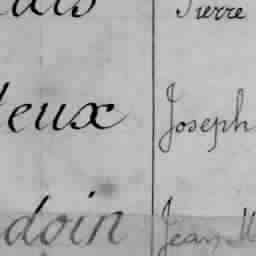 Pierre
eux Joseph
doin Jean M